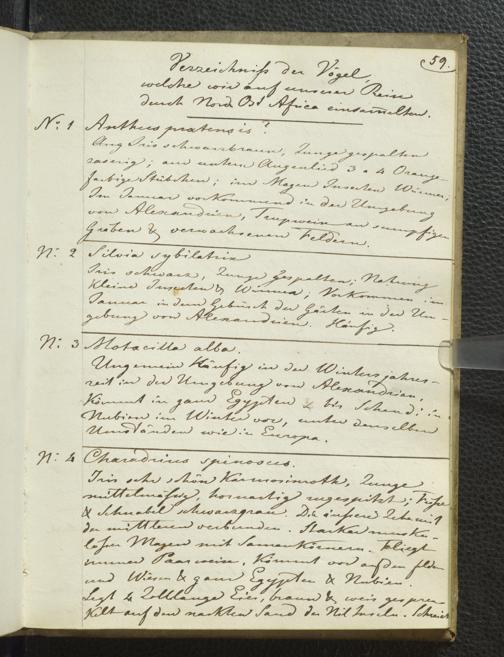 59.
Verzeichniß der Vögel,
welche wir auf unserer Reise
durch Nord Ost Africa einsamelten.
No: 1 Anthus pratensis?
Aug Iris schwarzbraun, Zunge gespalten
rasserig; am untern Augenlied 3 a 4 Orange
farbige Stübchen; im Magen Insecten Würmer;
Im Januar vorkommend in der Umgebung
von Alexandrien, Trupweise an sumpfigen
Gräben & verwachsenen Feldern.
N: 2 Silvia sybilatrix
Iris schwarz, Zunge gespalten; Nahrung
kleine Insecten & Würmer, Vorkommen: im
Januar in dem Gebüsch der Gärten in der Um-
gebung von Alexandrien. Häufig.
N: 3 Motacilla alba.
Ungemein Häufig in der Winterjahres-
zeit in der Umgebung von Alexandrien,
kommt in ganz Egypten & bis Schendi; in
Nubien im Winter vor, unter denselben
Umständen wie in Europa.
N: 4 Charadrius spinosus.
Iris sehr schön Karmosinroth, Zunge
mittelmäsig, hornartig zugespitzt; Füße
& Schnabel schwarzgrau. Die äußere Zehe mit
der mittleren verbunden. Starker musku-
loser Magen mit Samen Körnern. Fliegt
immer Paarweise, kommt vor auf den Feldern
und Wiesen & ganz Egypten & Nubien.
Legt 4 Zolllange Eier, braun & weis gespren-
kelt auf den nackten Sand der Nil Inseln. Schreit